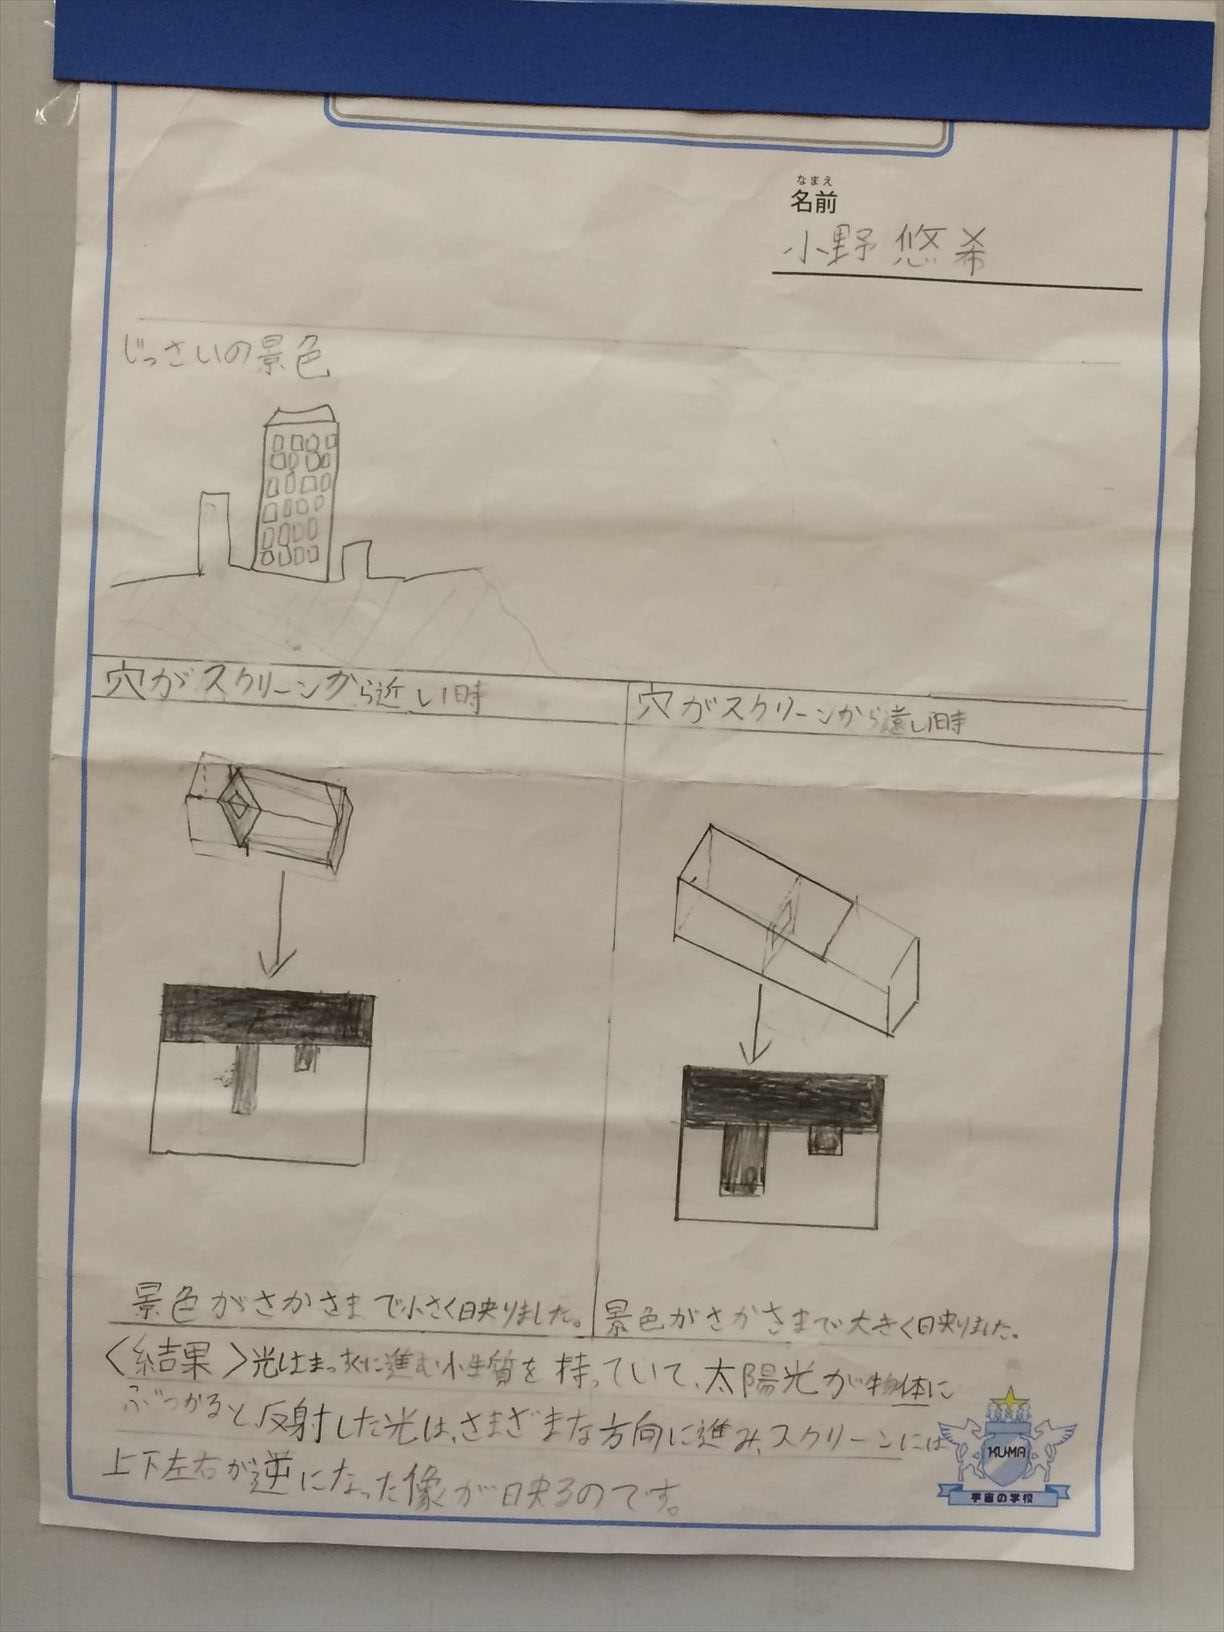 なまえ
名前
小野 悠希
じっさいの景色
穴がスクリーンから近い時
穴がスクリーンから遠い時
景色がさかさまで小さく映りました。
景色がさかさまで大きく映りました。
<結果>光はまっすぐに進む性質を持っていて、太陽光が物体に
ぶつかると、反射した光は、さまざまな方向に進み、スクリーンには
上下左右が逆になった像が映るのです。
KU-MA
宇宙の学校